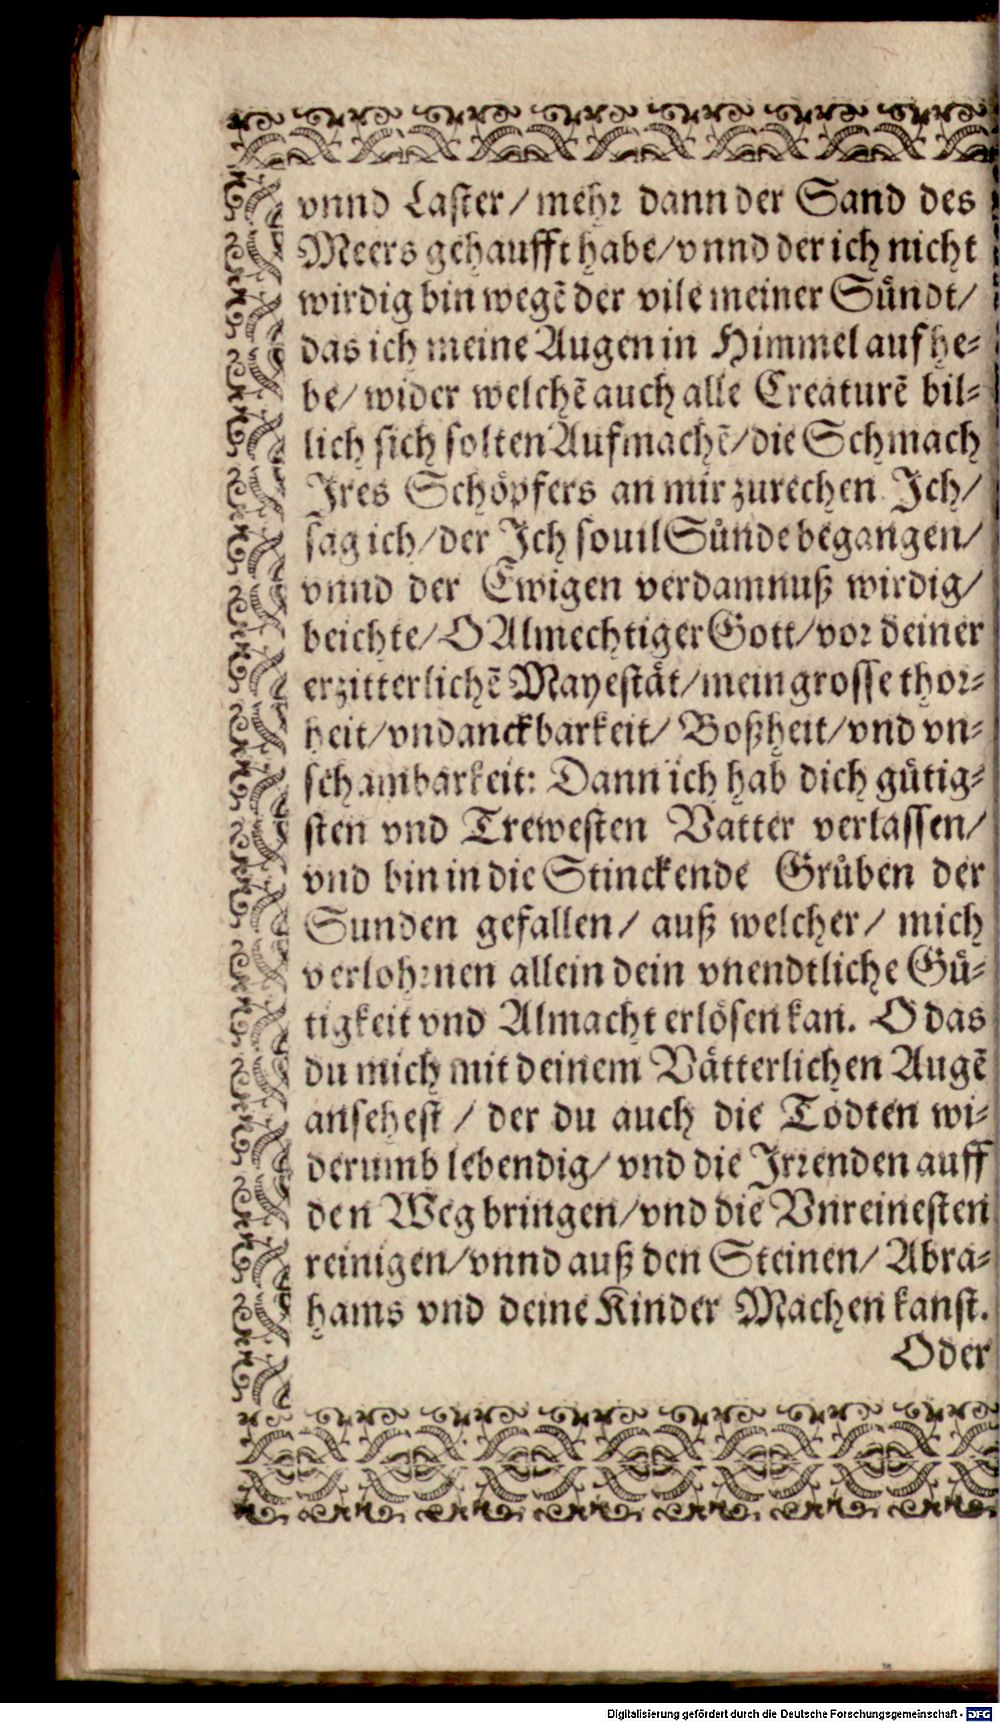 vnnd Laster/ mehr dann der Sand des
Meers gehaufft habe/ vnnd der ich nicht
wirdig bin wegẽ der vile meiner Sündt/
das ich meine Augen in Himmel auf he-
be/ wider welchẽ auch alle Creaturẽ bil-
lich sich solten Aufmachẽ/ die Schmach
Jres Schöpfers an mir zurechen Jch/
sag ich/ der Jch souil Sünde begangen/
vnnd der Ewigen verdamnuß wirdig/
beichte/ O Almechtiger Gott/ vor deiner
erzitterlichẽ Mayestät/ mein grosse thor-
heit/ vndanckbarkeit/ Boßheit/ vnd vn-
schambarkeit: Dann ich hab dich gütig-
sten vnd Trewesten Vatter verlassen/
vnd bin in die Stinckende Grüben der
Sunden gefallen/ auß welcher/ mich
verlohrnen allein dein vnendtliche Gü-
tigkeit vnd Almacht erlösen kan. O das
du mich mit deinem Vätterlichen Augẽ
ansehest / der du auch die Todten wi-
derumb lebendig/ vnd die Jrrenden auff
den Weg bringen/ vnd die Vnreinesten
reinigen/ vnnd auß den Steinen/ Abra-
hams vnd deine Kinder Machen kanst.
Oder
Digitalisierung gefördert durch die Deutsche Forschungsgemeinschaft - DFG